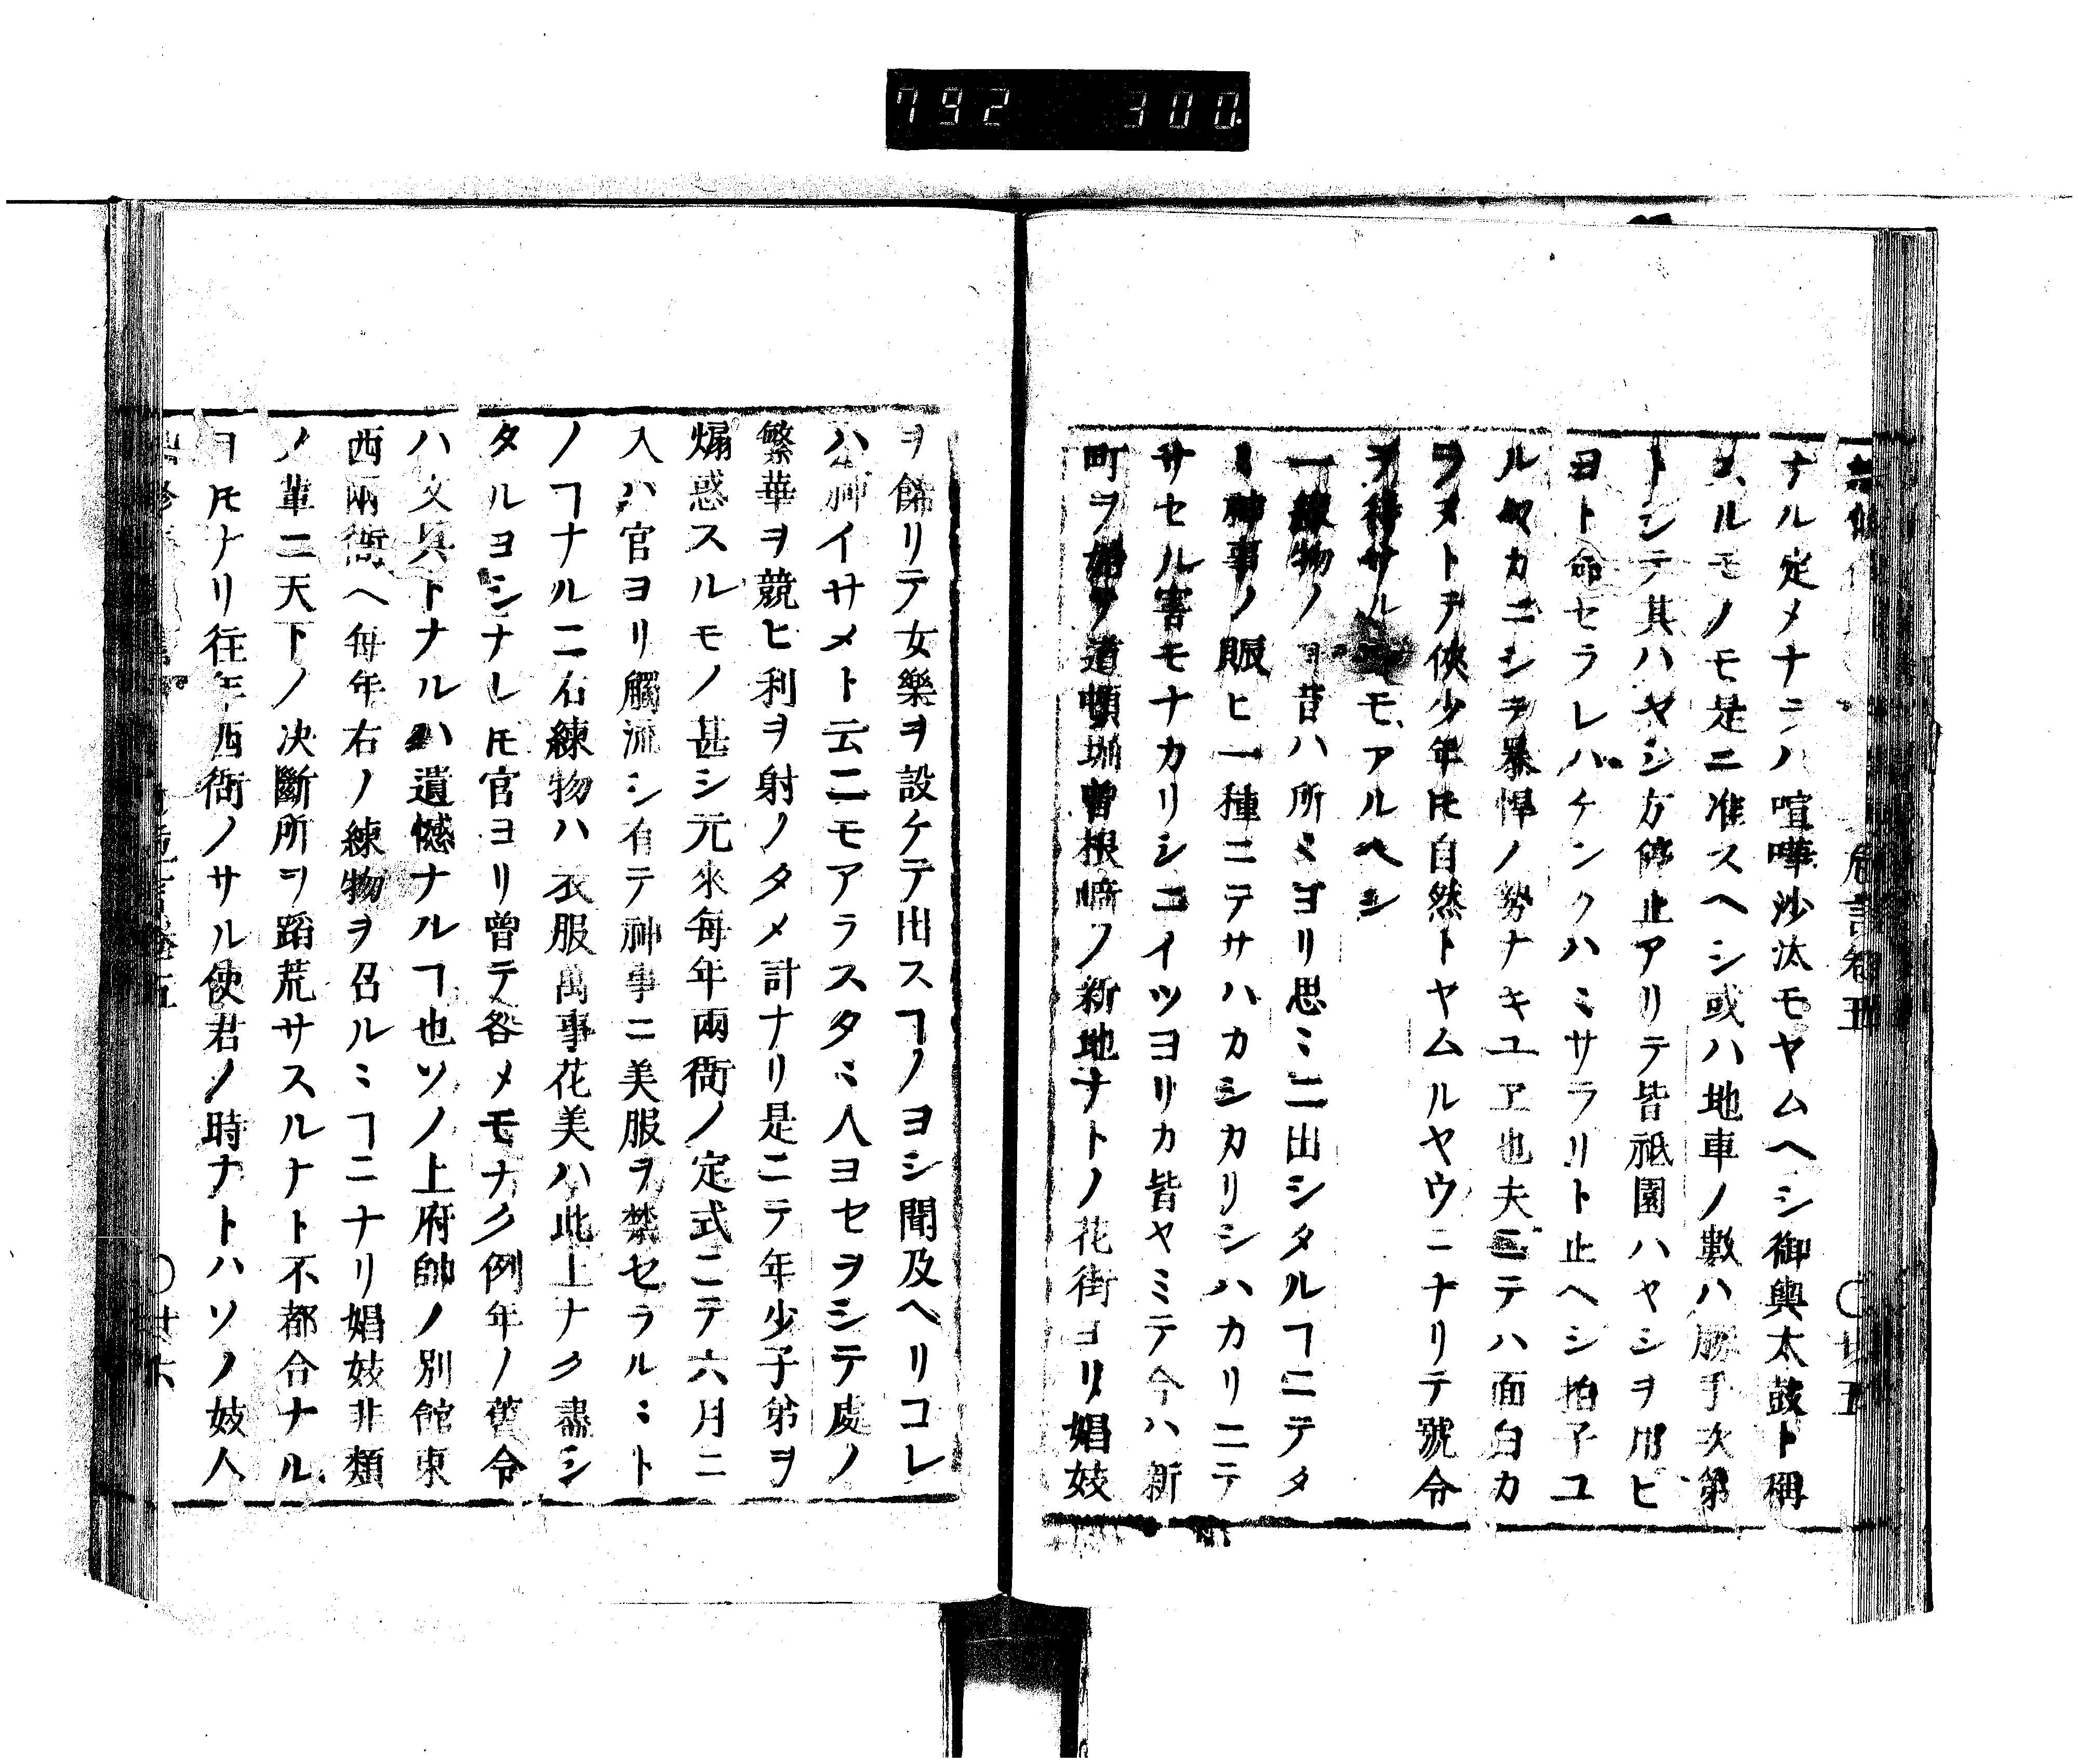 792 300
ナル定メナラハ喧嘩沙汰モヤムヘシ御輿太鼓ト稱
スルモノモ是ニ准スヘシ或ハ地車ノ數ハ勝手次第
トシテ其ハヤシ方停止アリテ皆祗園ハヤシヲ用ヒ
ヨト命セラレハケンクハミサラリト止ヘシ拍子ユ
ルヤカニシテ暴悍ノ勢ナキユヱ也夫ニテハ面白カ
ラヌトテ俠少年𪜈自然トヤムルヤウニナリテ號令
ヲ待サルニモアルヘシ
一練物ノヿ昔ハ所ミヨリ思ミニ出シタルヿニテタ
ミ神事ノ賑ヒ一種ニテサハカシカリシハカリニテ
サセル害モナカリシニイツヨリカ皆ヤミテ今ハ新
町ヲ始メ道頓堀曾根﨑ノ新地ナトノ花街ヨリ娼妓
ヲ餝リテ女樂ヲ設ケテ出スヿノヨシ聞及ヘリコレ
ハ神イサメト云ニモアラスタミ人ヨセヲシテ處ノ
繁華ヲ競ヒ利ヲ射ノタメ計ナリ是ニテ年少子弟ヲ
煽惑スルモノ甚シ元來每年兩衙ノ定式ニテ六月ニ
入ハ官ヨリ觸流シ有テ神事ニ美服ヲ禁セラルミト
ノヿナルニ右練物ハ衣服萬事花美ハ此上ナク盡シ
タルヨシナレ𪜈官ヨリ曾テ咎メモナク例年ノ舊令
ハ文具トナルハ遺憾ナルヿ也ソノ上府帥ノ別館東
西兩衙ヘ每年右ノ練物ヲ召ルミヿニナリ娼妓非類
ノ輩ニ天下ノ决斷所ヲ蹈荒サスルナト不都合ナル
ヿ𪜈ナリ往年西衙ノサル使君ノ時ナトハソノ妓人